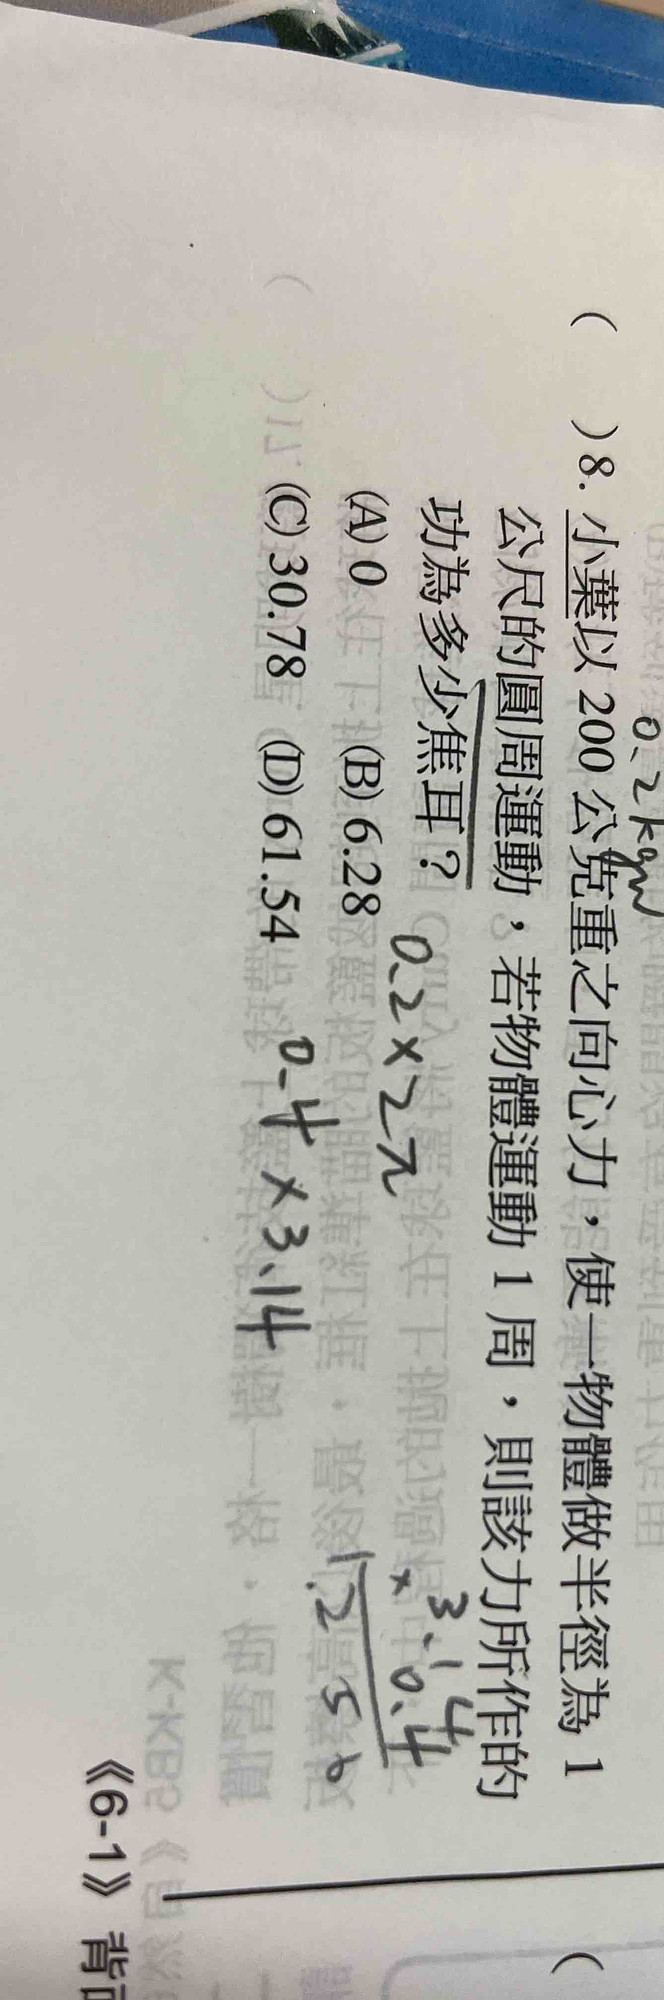 0.2kgw
( )8. 小葉以 200 公克重之向心力，使一物體做半徑為 1
公尺的圓周運動，若物體運動 1 周，則該力所作的
功為多少焦耳？
(A) 0 (B) 6.28
(C) 30.78 (D) 61.54
0.2×2π
0.4×3.14
3.14
×0.4
1.256
(
《6-1》背